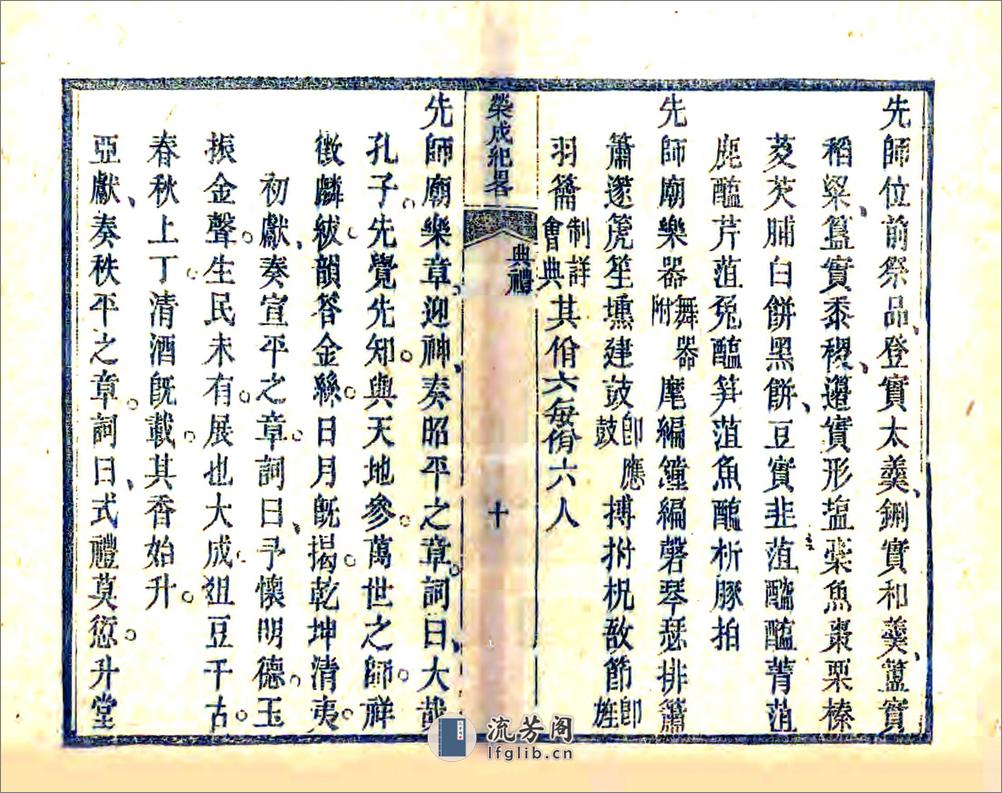 先師位前祭品登實太羹鉶實和羹簠實
稻粱簋實黍稷籩實形塩藁魚棗栗榛
菱芡脯白餅黑餅豆實韭菹醓醢菁菹
鹿醢芹菹兔醢笋菹魚醢析豚拍
先師廟樂器舞器附麾編鐘編磬琴瑟排簫
簫篴箎笙壎建鼓即應鼓搏拊柷敔節即旌
羽籥制詳會典其佾六每佾六人
榮成紀畧
典禮
十
先師廟樂章迎神奏昭平之章詞曰大哉
孔子先覺先知與天地參萬世之師祥
徵麟紱韻答金絲日月既揭乾坤清夷
初獻奏宣平之章詞曰予懷明德玉
振金聲生民未有展也大成俎豆千古
春秋上丁清酒旣載其香始升
亞獻奏秩平之章詞曰式禮莫愆升堂
流芳阁
lfglib.cn